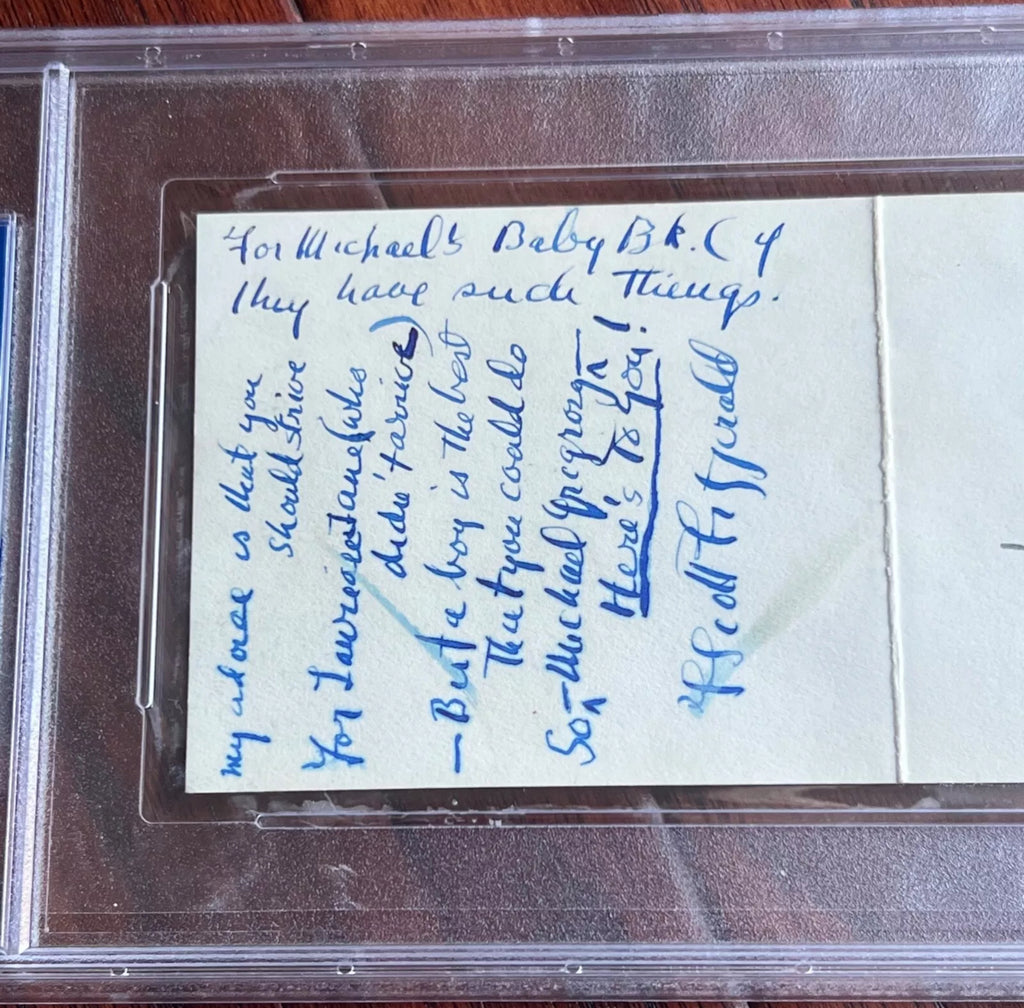 For Michael's Baby Bk. (if
they have such things.
My advice is that you
should strive —
For Laurese Jane (who
didn't arrive)
— But a boy is the best
That you could do
So — Michael —
Here's To You!
F Scott Fitzgerald